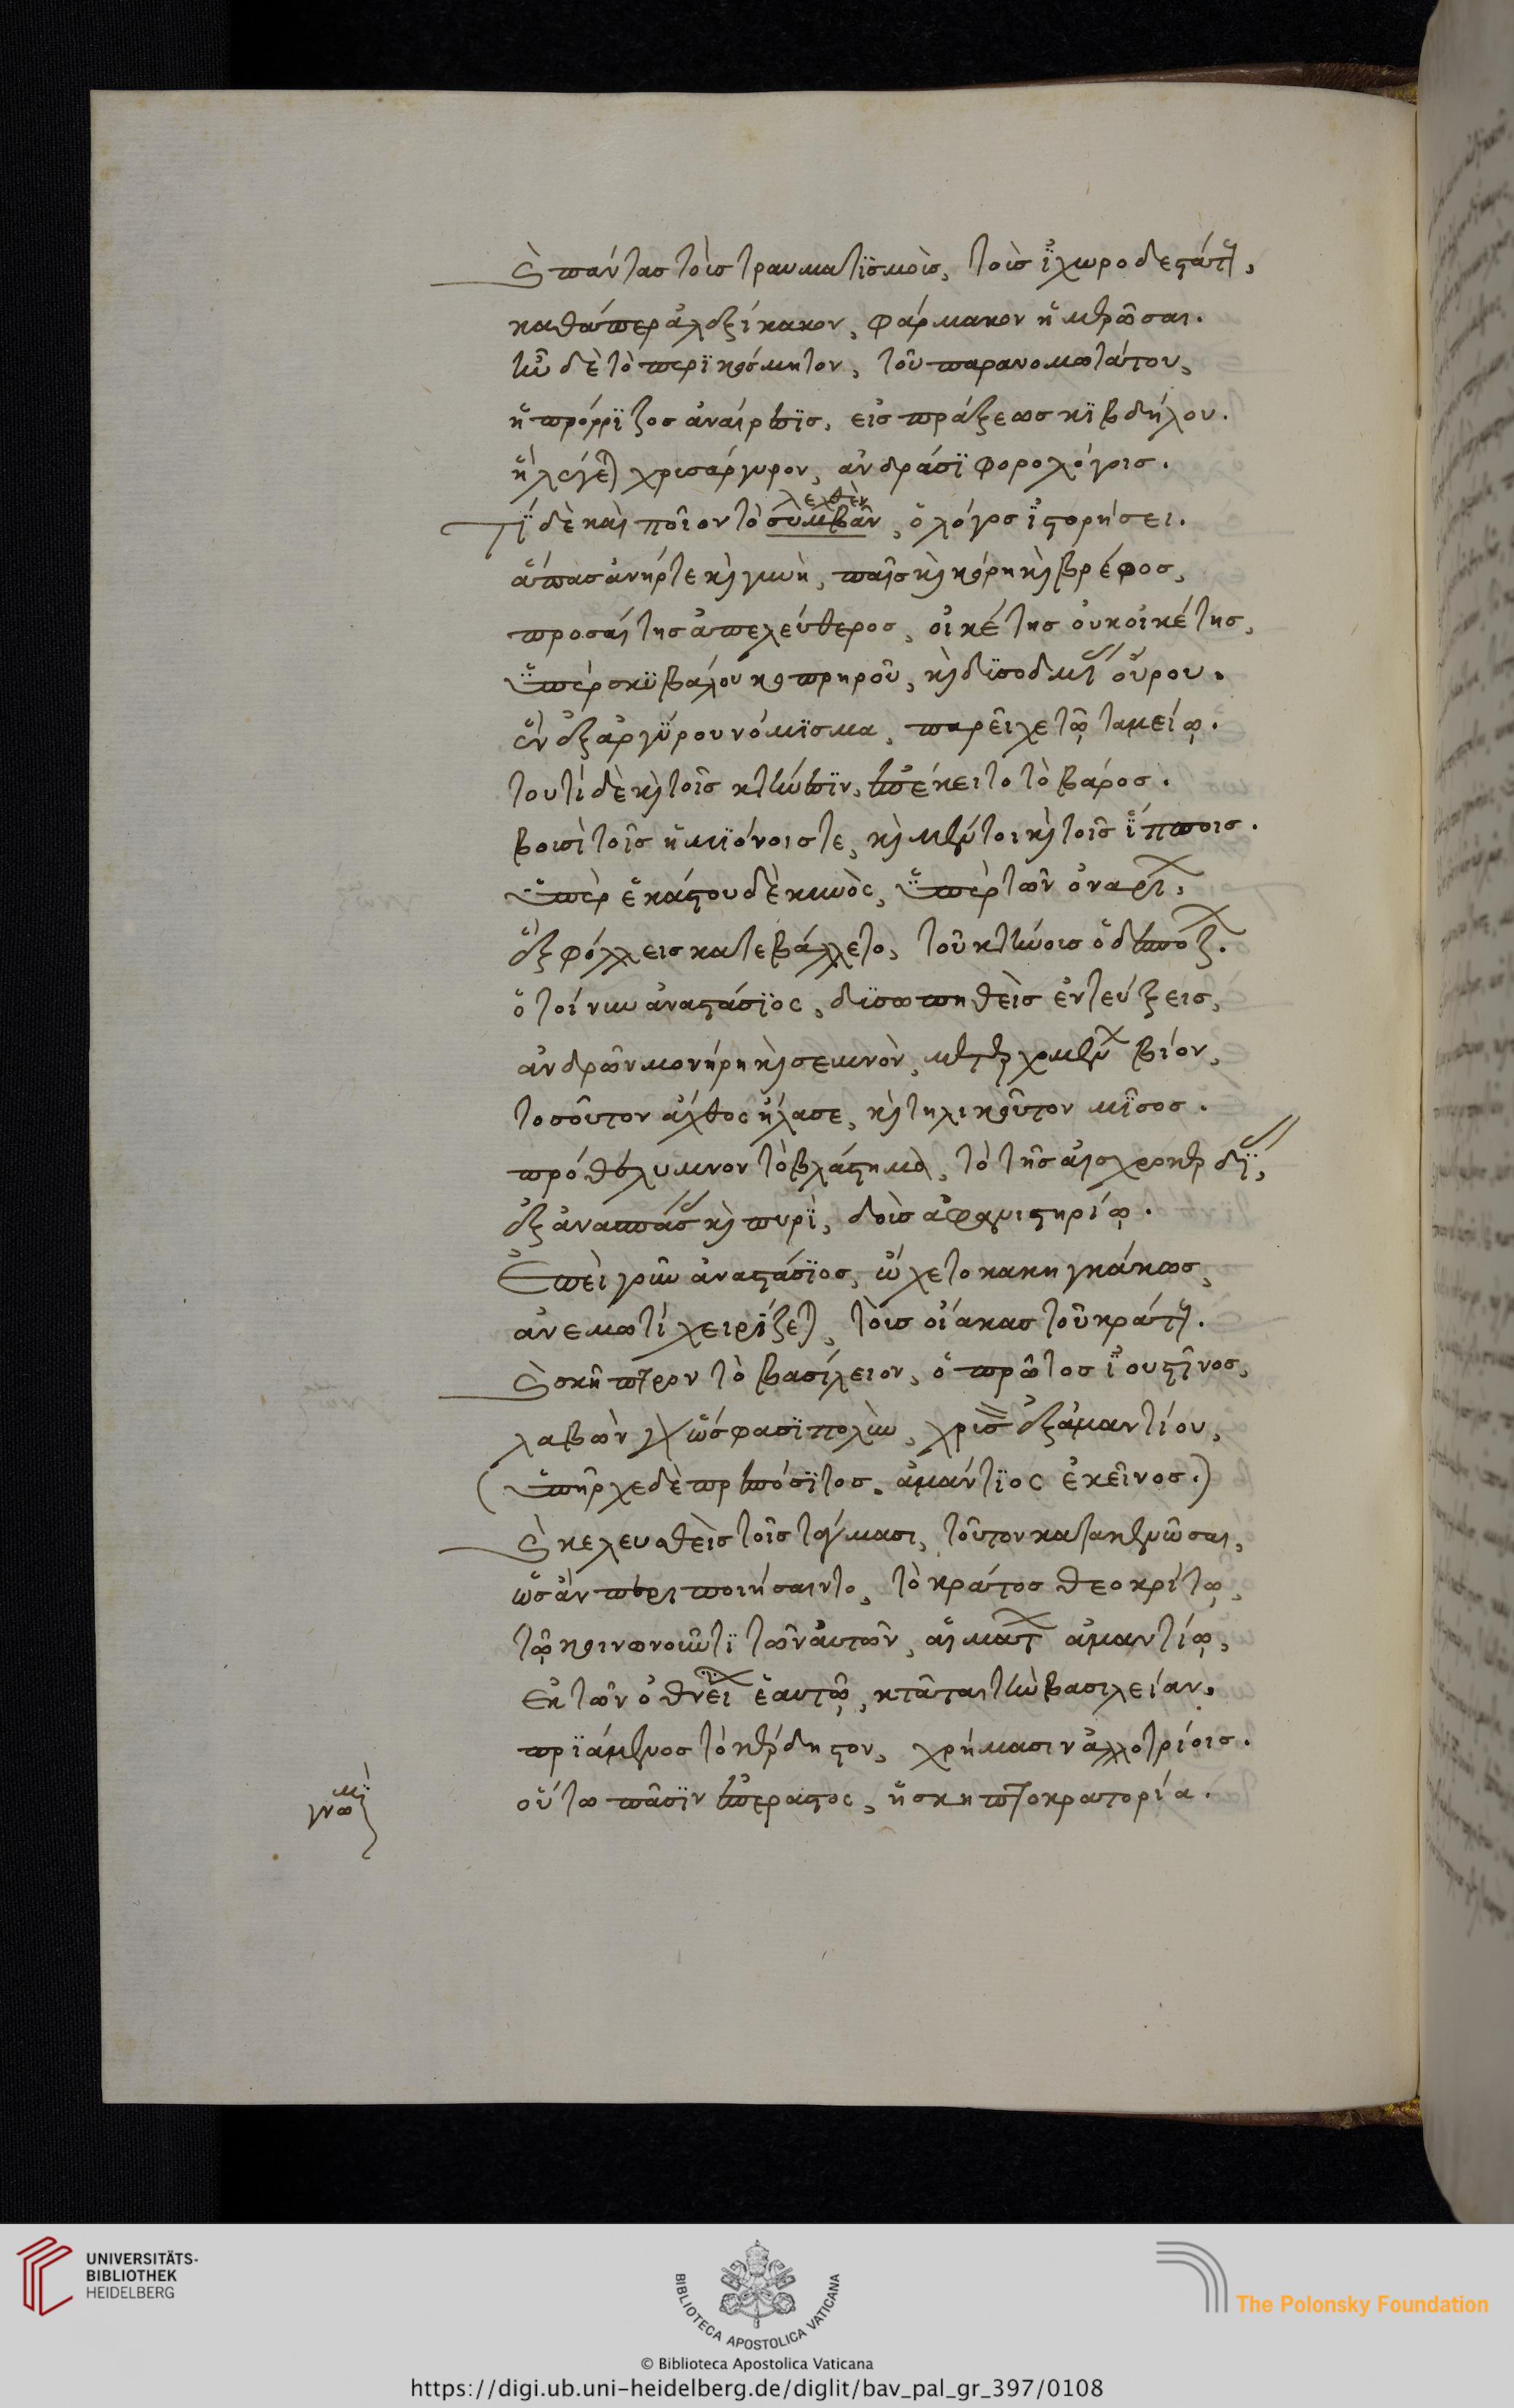 καὶ πάντας τοῖς τραυματϊσμοῖς, τοῖς ἰχωροδεστάτοις,
καθάπερ ἀλεξίκακον, φάρμακον ἡμερῶσαι.
ἦν δὲ τὸ περϊκόσμητον, τοῦ παρανομωτάτου,
ἡ πρόρρϊζος ἀναίρεσϊς, εἰσπράξεως κϊβδήλου.
ἣ λέγεται χρισάργυρον, ἀνδράσϊ φορολόγοις.
Τί δὲ καὶ ποῖον τὸ συμβὰν, ὁ λόγος ἱστορήσει.
λεχθὲν
ἅπας ἀνήρ τε καὶ γυνὴ, παῖς καὶ κόρη καὶ βρέφος,
προσαίτης ἀπελεύθερος, οἰκέτης οὐκ οἰκέτης,
ὑπὲρ σκϋβάλου κοπρηροῦ, καὶ δϋσόδμου οὔρου.
ἓν ἐξ ἀργύρου νόμϊσμα, παρεῖχε τῷ ταμείῳ.
τουτὶ δὲ καὶ τοῖς κτήνεσϊν, ἐπέκειτο τὸ βάρος.
βουσὶ τοῖς ἡμϊόνοις τε, καὶ μέντοι καὶ τοῖς ἵπποις.
ὑπὲρ ἑκάστου δὲ κυνὸς, ὑπὲρ τῶν ὀναρίων,
ἓξ φόλλεις κατεβάλλετο, τοῦ κτήνους ὁ δεσπόζων.
ὁ τοίνυν ἀναστάσϊος, δϋσωπηθεὶς ἐντεύξεις,
ἀνδρῶν μονήρη καὶ σεμνὸν, μετερχομένων βίον,
τοσοῦτον ἄχθος ἤλασε, καὶ τηλικοῦτον μῖσος.
προθέλυμνον τὸ βλάστημα, τὸ τῆς αἰσχροκερδείας,
ἐξανασπάσας καὶ πυρὶ, δοὺς ἀφανιστηρίῳ.
Ἐπεὶ γοῦν ἀναστάσϊος, ᾤχετο κακηγκάκως,
ἀνεμωτὶ χειρίζεται, τοὺς οἴακας τοῦ κράτους.
καὶ σκῆπτρον τὸ βασίλειον, ὁ πρῶτος ἰουστῖνος,
λαβὼν γὰρ ὥς φασϊ πολὺν, χρυσὸν ἐξ ἀμαντίου,
(ὑπῆρχε δὲ πρεπόσϊτος. ἀμάντϊος ἐκεῖνος.)
καὶ κελευσθεὶς τοῖς τάγμασι, τοῦτον κατακενῶσαι,
ὡς ἂν περιποιήσαιντο, τὸ κράτος θεοκρίτῳ,
τῷ κοινωνοῦντϊ τῶν αὐτῶν, αἱμάτων ἀμαντίῳ,
ἐκ τῶν ὀθνείων ἑαυτῷ, κτᾶται τὴν βασιλείαν.
πρϊάμενος τὸ κέρδιστον, χρήμασιν ἀλλοτρίοις.
οὕτω πᾶσϊν ἐπέραστος, ἡ σκηπτοκρατορία.
γνωμϊ
UNIVERSITÄTS-
BIBLIOTHEK
HEIDELBERG
BIBLIOTECA APOSTOLICA VATICANA
The Polonsky Foundation
© Biblioteca Apostolica Vaticana
https://digi.ub.uni-heidelberg.de/diglit/bav_pal_gr_397/0108